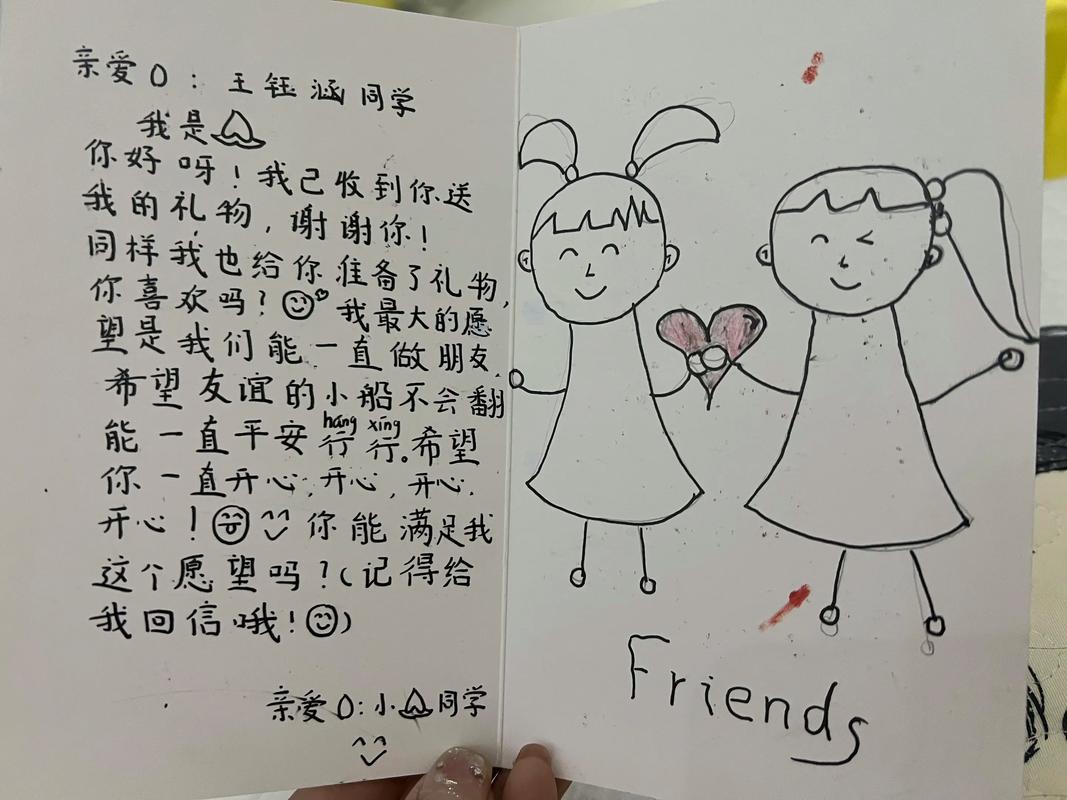 亲爱O：王钰涵同学
我是
你好呀！我已收到你送
我的礼物，谢谢你！
同样我也给你准备了礼物，
你喜欢吗？我最大的愿
望是我们能一直做朋友，
希望友谊的小船不会翻
能一直平安行行。希望
háng xíng
你一直开心，开心，开心，
开心！你能满足我
这个愿望吗？（记得给
我回信哦！）
亲爱O：小同学
Friends